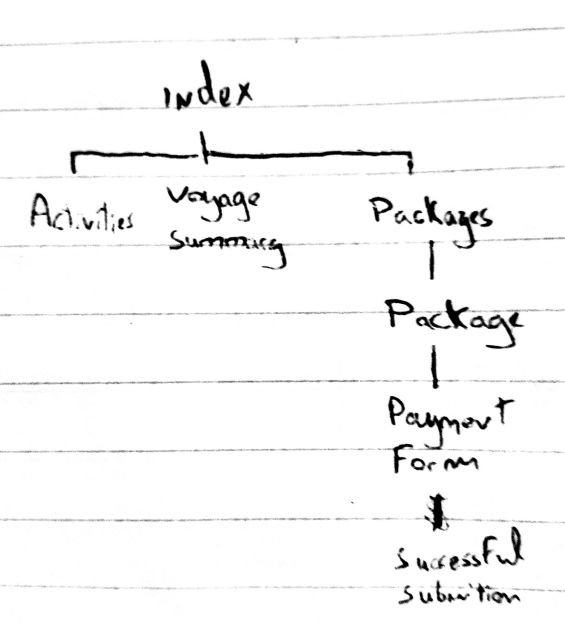 Index
Activities
Voyage
Summury
Packages
Package
Payment
Form
Successful
Submition